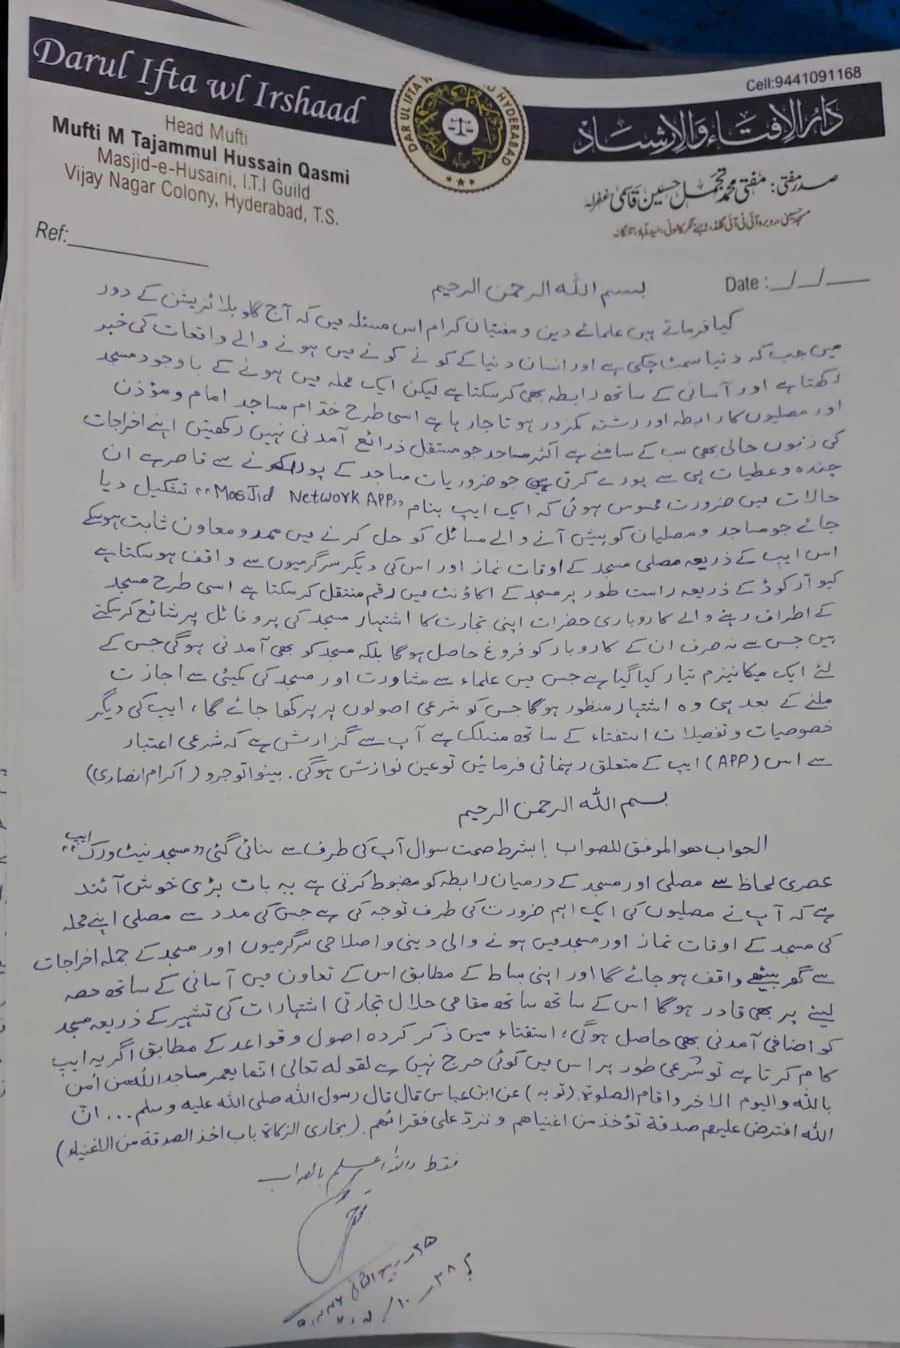 Darul Ifta wl Irshaad
Cell:9441091168
دَارُالِافتَاءِ وَالِارشَاد
DAR UL IFTA HYDERABAD
Head Mufti
Mufti M Tajammul Hussain Qasmi
Masjid-e-Husaini, I.T.I Guild
Vijay Nagar Colony, Hyderabad, T.S.
صدر مفتی: مفتی محمد تجمل حسین قاسمی غفرلہ
Ref:
Date :__/__/___
بسم اللہ الرحمن الرحیم
کیا فرماتے ہیں علمائے دین و مفتیان کرام اس مسئلہ میں کہ آج گلوبلائزیشن کے دور
میں جب کہ دنیا سمٹ چکی ہے اور انسان دنیا کے کونے کونے میں ہونے والے واقعات کی خبر
رکھتا ہے اور آسانی کے ساتھ رابطہ بھی کر سکتا ہے لیکن ایک محلہ میں ہونے کے باوجود مسجد
اور مصلیوں کا رابطہ اور رشتہ کمزور ہوتا جا رہا ہے اسی طرح خدّام مساجد امام و مؤذن
کی زبوں حالی بھی سب کے سامنے ہے اکثر مساجد جو مستقل ذرائع آمدنی نہیں رکھتیں اپنے اخراجات
چندہ و عطیات ہی سے پورے کرتی ہیں جو ضروریات مساجد کے پورا کرنے سے قاصر ہے ان
حالات میں ضرورت محسوس ہوئی کہ ایک ایپ بنام "MasJid Network APP" تشکیل دیا
جائے جو مساجد و مصلیان کو پیش آنے والے مسائل کو حل کرنے میں ممد و معاون ثابت ہوسکے
اس ایپ کے ذریعہ مصلی مسجد کے اوقات نماز اور اس کی دیگر سرگرمیوں سے واقف ہو سکتا ہے
کیو آر کوڈ کے ذریعہ راست طور پر مسجد کے اکاؤنٹ میں رقم منتقل کر سکتا ہے اسی طرح مسجد
کے اطراف رہنے والے کاروباری حضرات اپنی تجارت کا اشتہار مسجد کی پروفائل پر شائع کرسکتے
ہیں جس سے نہ صرف ان کے کاروبار کو فروغ حاصل ہوگا بلکہ مسجد کو بھی آمدنی ہوگی جس کے
لئے ایک میکانیزم تیار کیا گیا ہے جس میں علماء سے مشاورت اور مسجد کی کمیٹی سے اجازت
ملنے کے بعد ہی وہ اشتہار منظور ہوگا جس کو شرعی اصولوں پر پرکھا جائے گا، ایپ کی دیگر
خصوصیات و تفصیلات استفتاء کے ساتھ منسلک ہے آپ سے گزارش ہے کہ شرعی اعتبار
سے اس (APP) ایپ کے متعلق رہنمائی فرمائیں تو عین نوازش ہوگی۔ بینوا توجرو (اکرام انصاری)
بسم اللہ الرحمن الرحیم
الجواب ھو الموفق للصواب ! بشرط صحت سوال آپ کی طرف سے بنائی گئی "مسجد نیٹ ورک" ایپ
عصری لحاظ سے مصلی اور مسجد کے درمیان رابطہ کو مضبوط کرتی ہے یہ بات بڑی خوش آئند
ہے کہ آپ نے مصلیوں کی ایک اہم ضرورت کی طرف توجہ کی ہے جس کی مدد سے مصلی اپنے محلہ
کی مسجد کے اوقات نماز اور مسجد میں ہونے والی دینی و اصلاحی سرگرمیوں اور مسجد کے جملہ اخراجات
سے گھر بیٹھے واقف ہو جائے گا اور اپنی بساط کے مطابق اس کے تعاون میں آسانی کے ساتھ حصہ
لینے پر بھی قادر ہوگا اس کے ساتھ ساتھ مقامی حلال تجارتی اشتہارات کی تشہیر کے ذریعہ مسجد
کو اضافی آمدنی بھی حاصل ہوگی، استفتاء میں ذکر کردہ اصول و قواعد کے مطابق اگر یہ ایپ
کام کرتا ہے تو شرعی طور پر اس میں کوئی حرج نہیں ہے لقولہ تعالی انما یعمر مساجد اللہ من اٰمن
باللہ والیوم الاٰخر واقام الصلوۃ۔ (توبہ) عن ابن عباس قال قال رسول اللہ صلی اللہ علیہ وسلم ... ان
اللہ افترض علیہم صدقۃ تؤخذ من اغنیاھم و تردّ علی فقرائھم۔ (بخاری الزکاۃ باب اخذ الصدقۃ من الاغنیاء)
فقط واللہ اعلم بالصواب